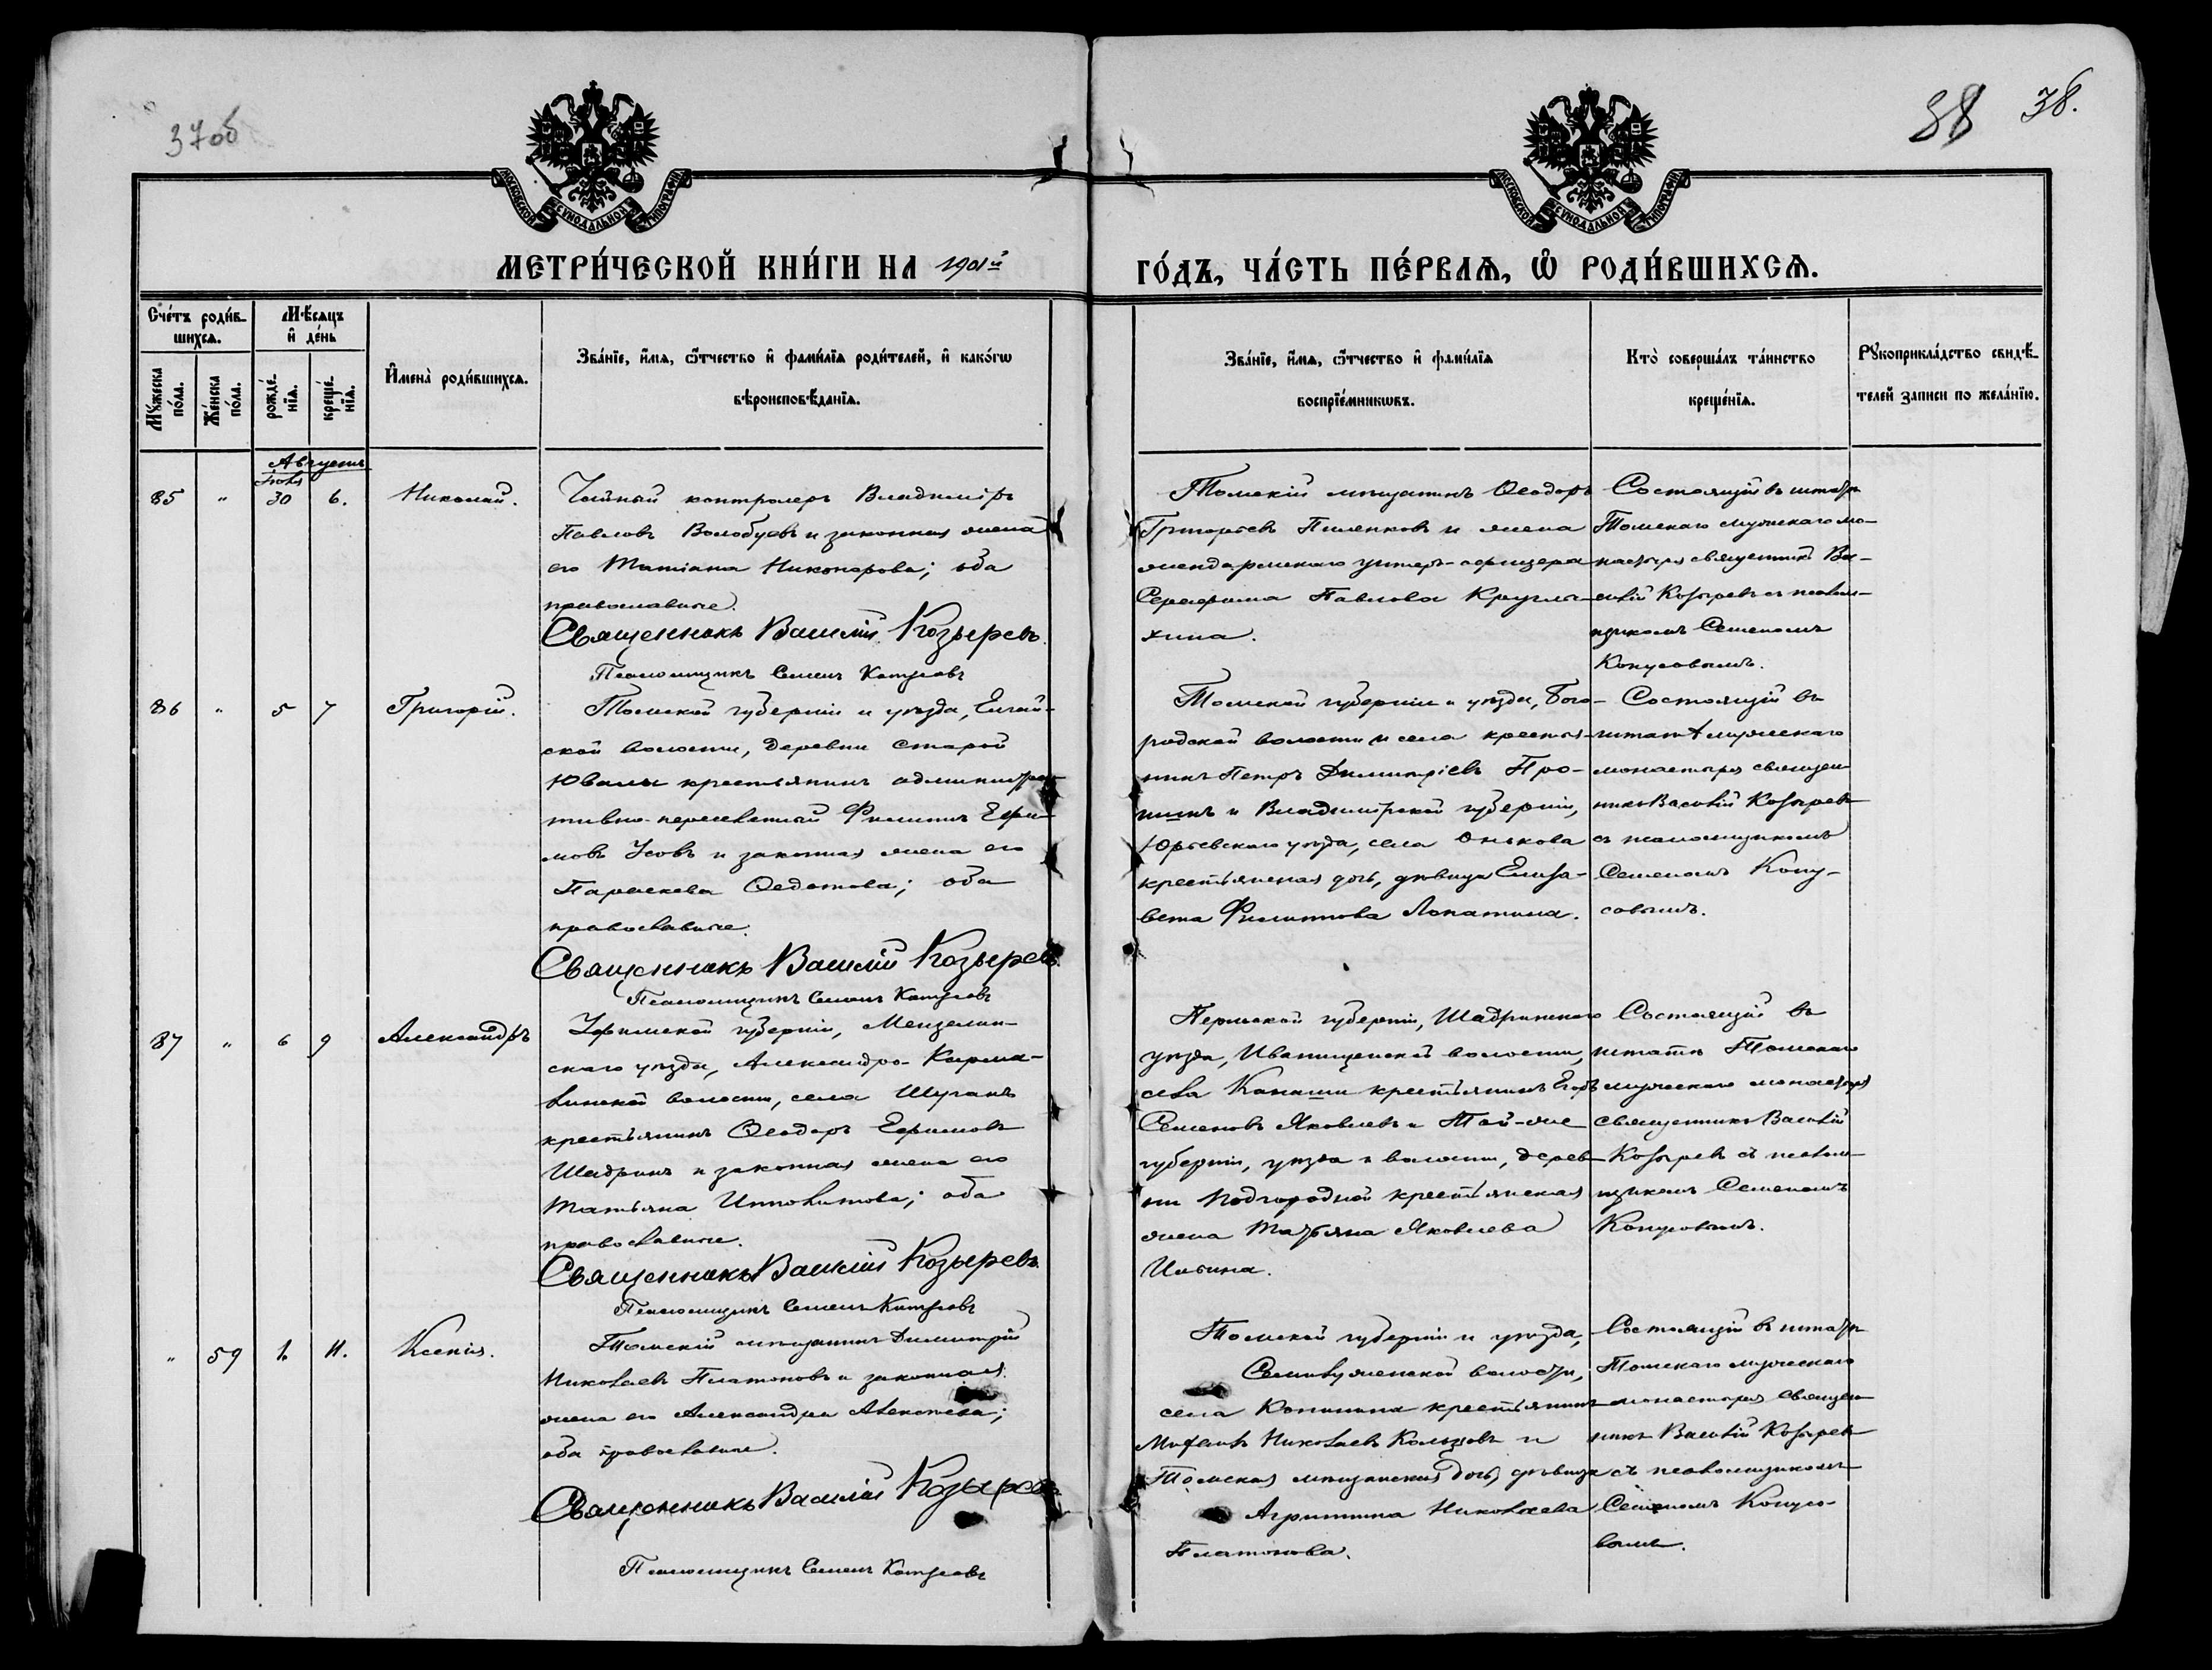 37об
88 38.
МОСКОВСКОЙ СѴНОДАЛЬНОЙ ТИПОГРАФІИ
МОСКОВСКОЙ СѴНОДАЛЬНОЙ ТИПОГРАФІИ
МЕТРИ́ЧЕСКОЙ КНИ́ГИ НА 1901й
ГО́ДЪ, ЧА́СТЬ ПЕ́РВАѦ, Ѡ҆ РОДИ́ВШИХСѦ.
Сче́тъ роди́в-
шихсѧ.
Мꙋ́жеска по́ла.
Же́нска по́ла.
Мѣ́сѧцъ
и҆ де́нь
рожде́-
нїѧ.
креще́-
нїѧ.
И҆мена̀ роди́вшихсѧ.
Зва́нїе, и҆́мѧ, ѻ҆́тчество и҆ фами́лїѧ роди́телей, и҆ како́гѡ
вѣроисповѣ́данїѧ.
Зва́нїе, и҆́мѧ, ѻ҆́тчество и҆ фами́лїѧ
воспрїе́мникѡвъ.
Кто̀ соверша́лъ та́инство
креще́нїѧ.
Рꙋкоприкла́дство свидѣ́-
телей записи по жела́нїю.
Августъ
Іюль
85 " 30 6. Николай.
Чайный контролеръ Владиміръ
Павловъ Волобуевъ и законная жена
его Татіана Никонорова; оба
православные.
Священникъ Василій Козыревъ.
Псаломщикъ Семенъ Конусовъ
Томскій мѣщанинъ Ѳеодоръ
Григорьевъ Пиленковъ и жена
жендармскаго унтеръ-офицера
Серафима Павлова Кругли-
хина.
Состоящій въ штатѣ
Томскаго мужскаго мо-
настыря священникъ Ва-
силій Козыревъ съ псалом-
щикомъ Семеномъ
Конусовымъ.
86 " 5 7 Григорій.
Томской губерніи и уѣзда, Елгай-
ской волости, деревни Старой
Ювалы крестьянинъ администра-
тивно-пересланный Филиппъ Ефи-
мовъ Усовъ и законная жена его
Параскева Ѳедотова; оба
православные.
Священникъ Василій Козыревъ.
Псаломщикъ Семенъ Конусовъ
Томской губерніи и уѣзда, Бого-
родской волости и села крестья-
нинъ Петръ Димитріевъ Про-
нинъ и Владимірской губерніи,
Юрьевскаго уѣзда, села Онькова
крестьянская дочь, дѣвица Елиза-
вета Филиппова Лопатина.
Состоящій въ
штатѣ мужескаго
монастыря священ-
никъ Василій Козыревъ
съ псаломщикомъ
Семеномъ Кону-
совымъ.
87 " 6 9 Александръ
Уфимской губерніи, Мензелин-
скаго уѣзда, Александро-Карма-
линской волости, села Шуганъ
крестьянинъ Ѳеодоръ Ефимовъ
Шадринъ и законная жена его
Татьяна Ипполитова; оба
православные.
Священникъ Василій Козыревъ.
Псаломщикъ Семенъ Конусовъ
Пермской губерніи, Шадринскаго
уѣзда, Иванищенской волости,
села Канаши крестьянинъ Егоръ
Семеновъ Яковлевъ и Той-же
губерніи, уѣзда и волости, дерев-
ни Подгородной крестьянская
жена Татьяна Яковлева
Ильина.
Состоящій въ
штатѣ Томскаго
мужескаго монастыря
священникъ Василій
Козыревъ съ псалом-
щикомъ Семеномъ
Конусовымъ.
" 59 1. 11. Ксенія.
Томскій мѣщанинъ Димитрій
Николаевъ Платоновъ и законная
жена его Александра Алексѣева;
оба православные.
Священникъ Василій Козыревъ
Псаломщикъ Семенъ Конусовъ
Томской губерніи и уѣзда,
Семилуженской волости,
села Конинина крестьянинъ
Николаевъ Кольцовъ и
Томская мѣщанская дочь, дѣвица
Агриппина Николаева
Платонова.
Состоящій въ штатѣ
Томскаго мужескаго
монастыря священ-
никъ Василій Козыревъ
съ псаломщикомъ
Семеномъ Конусо-
вымъ.